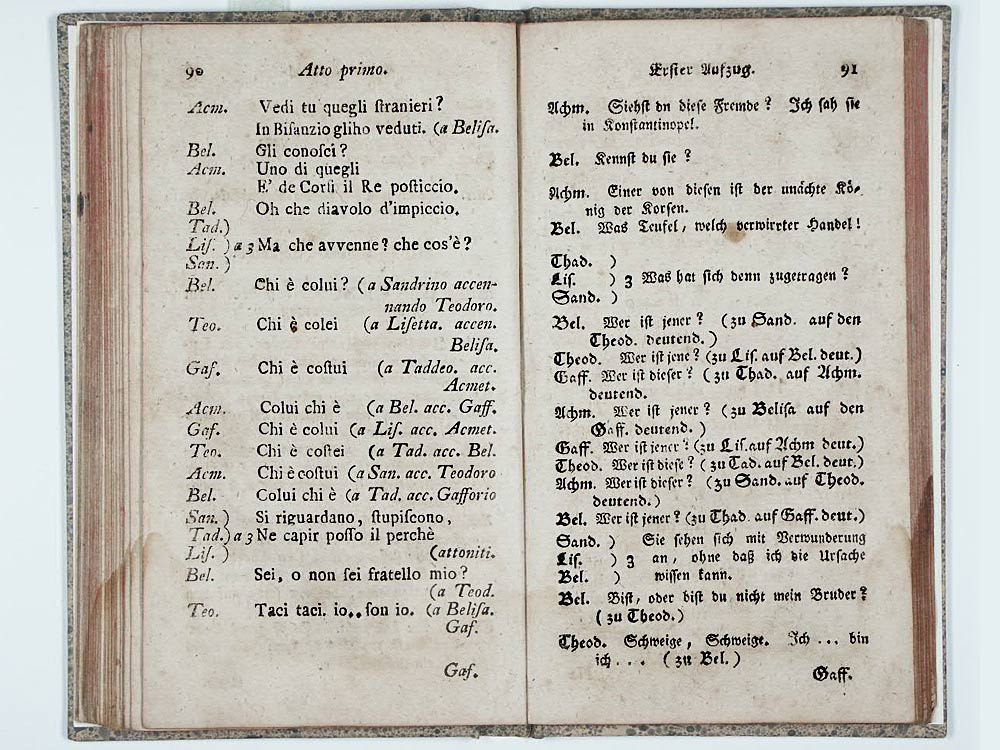 90 Atto primo.
Acm. Vedi tu quegli ſtranieri?
In Biſanzio gliho veduti. (a Beliſa.
Bel. Gli conoſci?
Acm. Uno di quegli
E' de Corſi il Re poſticcio.
Bel. Oh che diavolo d'impiccio.
Tad.)
Liſ. ) a 3 Ma che avvenne? che cos'è?
San. )
Bel. Chi è colui? (a Sandrino accen-
nando Teodoro.
Teo. Chi è colei (a Liſetta. accen.
Beliſa.
Gaf. Chi è coſtui (a Taddeo. acc.
Acmet.
Acm. Colui chi è (a Bel. acc. Gaff.
Gaf. Chi è colui (a Liſ. acc. Acmet.
Teo. Chi è coſtei (a Tad. acc. Bel.
Acm. Chi è coſtui (a San. acc. Teodoro
Bel. Colui chi è (a Tad. acc. Gafforio
San. ) Si riguardano, ſtupiſcono,
Tad.) a 3 Ne capir poſſo il perchè
Liſ. ) (attoniti.
Bel. Sei, o non ſei fratello mio?
(a Teod.
Teo. Taci taci. io.. ſon io. (a Beliſa.
Gaf.
Gaf.
Erſter Aufzug. 91
Achm. Siehſt dn dieſe Fremde? Ich ſah ſie
in Konſtantinopel.
Bel. Kennſt du ſie?
Achm. Einer von dieſen iſt der unächte Kö-
nig der Korſen.
Bel. Was Teufel, welch verwirrter Handel!
Thad. )
Liſ. ) 3 Was hat ſich denn zugetragen?
Sand. )
Bel. Wer iſt jener? (zu Sand. auf den
Theod. deutend.)
Theod. Wer iſt jene? (zu Liſ. auf Bel. deut.)
Gaff. Wer iſt dieſer? (zu Thad. auf Achm.
deutend.
Achm. Wer iſt jener? (zu Beliſa auf den
Gaff. deutend.)
Gaff. Wer iſt jener? (zu Liſ. auf Achm deut.)
Theod. Wer iſt dieſe? (zu Tad. auf Bel. deut.)
Achm. Wer iſt dieſer? (zu Sand. auf Theod.
deutend.)
Bel. Wer iſt jener? (zu Thad. auf Gaff. deut.)
Sand. ) Sie ſehen ſich mit Verwunderung
Liſ. ) 3 an, ohne daß ich die Urſache
Bel. ) wiſſen kann.
Bel. Biſt, oder biſt du nicht mein Bruder?
(zu Theod.)
Theod. Schweige, Schweige. Ich ... bin
ich ... (zu Bel.)
Gaff.